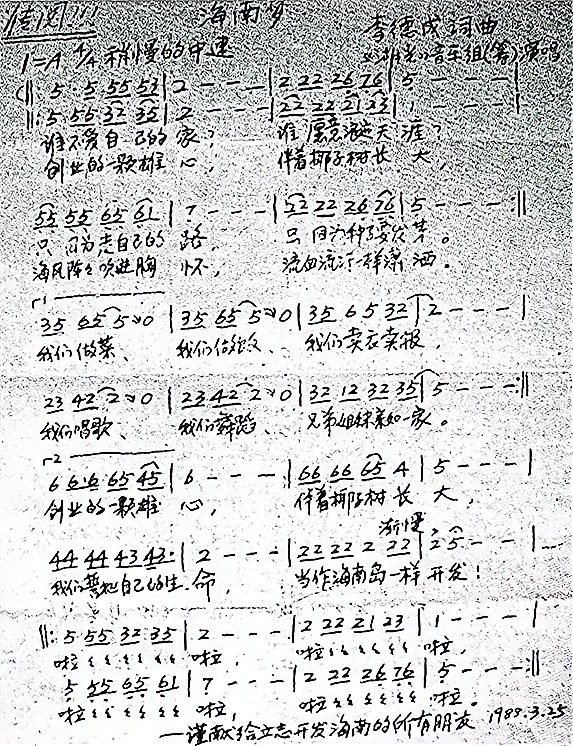 借阅!!!
海南梦
李德成词曲
1=A 4/4 稍慢的中速
音乐组(筹)演唱
(‖: 5·5 55 52 | 2 - - - | 2 22 26 76 | 5 - - - |
‖: 5 55 32 35 | 2 - - - | 22 22 21 23 | 1 - - - |
谁不爱自己的家? 谁愿意浪迹天涯?
创业的一颗雄心, 伴着椰子树长大,
55 55 65 61 | 7 - - - | 52 22 26 76 | 5 - - - :‖
只因为走自己的路, 只因为种子要发芽。
海风阵阵吹进胸怀, 流血流汗一样潇洒。
35 65 5 0 | 35 65 5 0 | 35 6 5 32 | 2 - - - |
我们做菜、 我们做饭、 我们卖衣卖报,
23 42 2 0 | 23 42 2 0 | 32 12 32 35 | 5 - - - :‖
我们唱歌、 我们舞蹈、 兄弟姐妹亲如一家。
6 6·6 65 45 | 6 - - - | 66 66 65 4 | 5 - - - |
创业的一颗雄心, 伴着椰子树长大,
渐慢
44 44 43 43· | 2 - - - | 22 22 2 22 | 2 5 - - |
我们要把自己的生命, 当作海南岛一样开发!
‖: 5 55 32 35 | 2 - - - | 2 22 21 23 | 1 - - - |
啦 啦, 啦 啦,
5 55 65 61 | 7 - - - | 2 22 26 76 | 5 - - - :‖
啦 啦, 啦 啦。
—谨献给立志开发海南的所有朋友。 1988.3.25